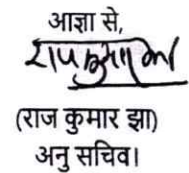 आज्ञा से,
राज कुमार झा
(राज कुमार झा)
अनु सचिव।